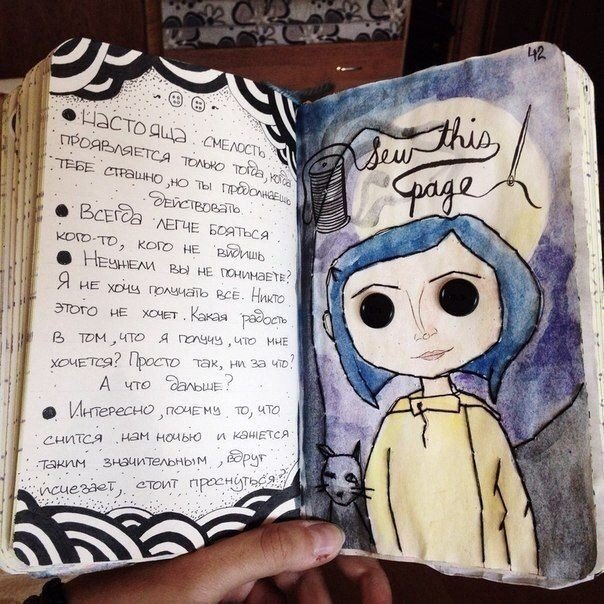 Настояща смелость
проявляется только тогда, когда
тебе страшно, но ты продолжаешь
действовать
Всегда легче бояться
кого-то, кого не видишь
Неужели вы не понимаете?
Я не хочу получать всё. Никто
этого не хочет. Какая радость
в том, что я получу, что мне
хочется? Просто так, ни за что?
А что дальше?
Интересно, почему то, что
снится нам ночью и кажется
таким значительным, вдруг
исчезает, стоит проснуться?
42
Sew this
page